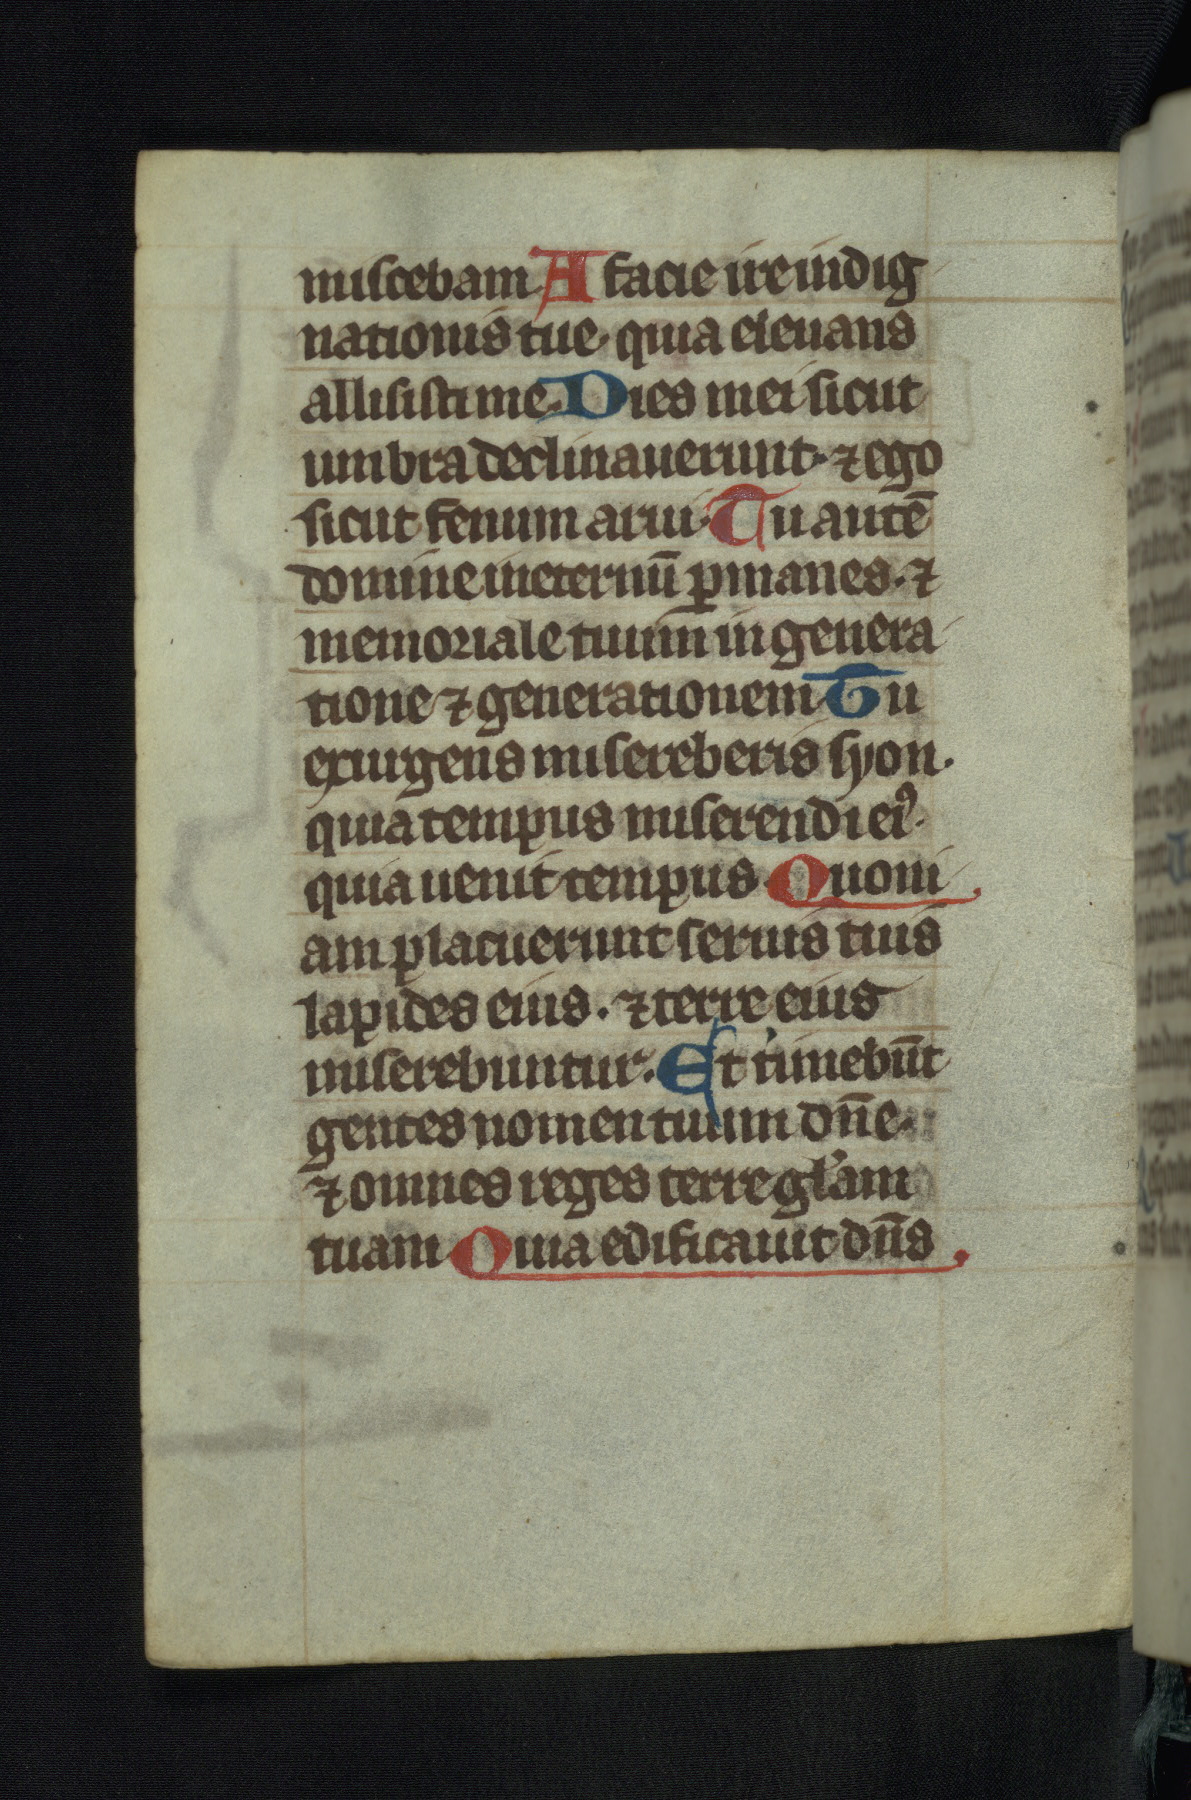 miscebam A facie ire indig
nationis tue· quia eleuans
allisisti me· Dies mei sicut
umbra declinauerunt· ⁊ ego
sicut fenum arui· Tu autē
domine ineternū ꝑmanes· ⁊
memoriale tuum in genera
tione ⁊ generationem Tu
exurgens misereberis syon·
quia tempus miserendi eiꝰ·
quia uenit tempus Quoni
am placuerunt seruis tuis
lapides eius· ⁊ terre eius
miserebuntur· Et timebūt
gentes nomen tuum dn̄e·
⁊ omnes reges terre gl'am
tuam Quia edificauit dn̄s